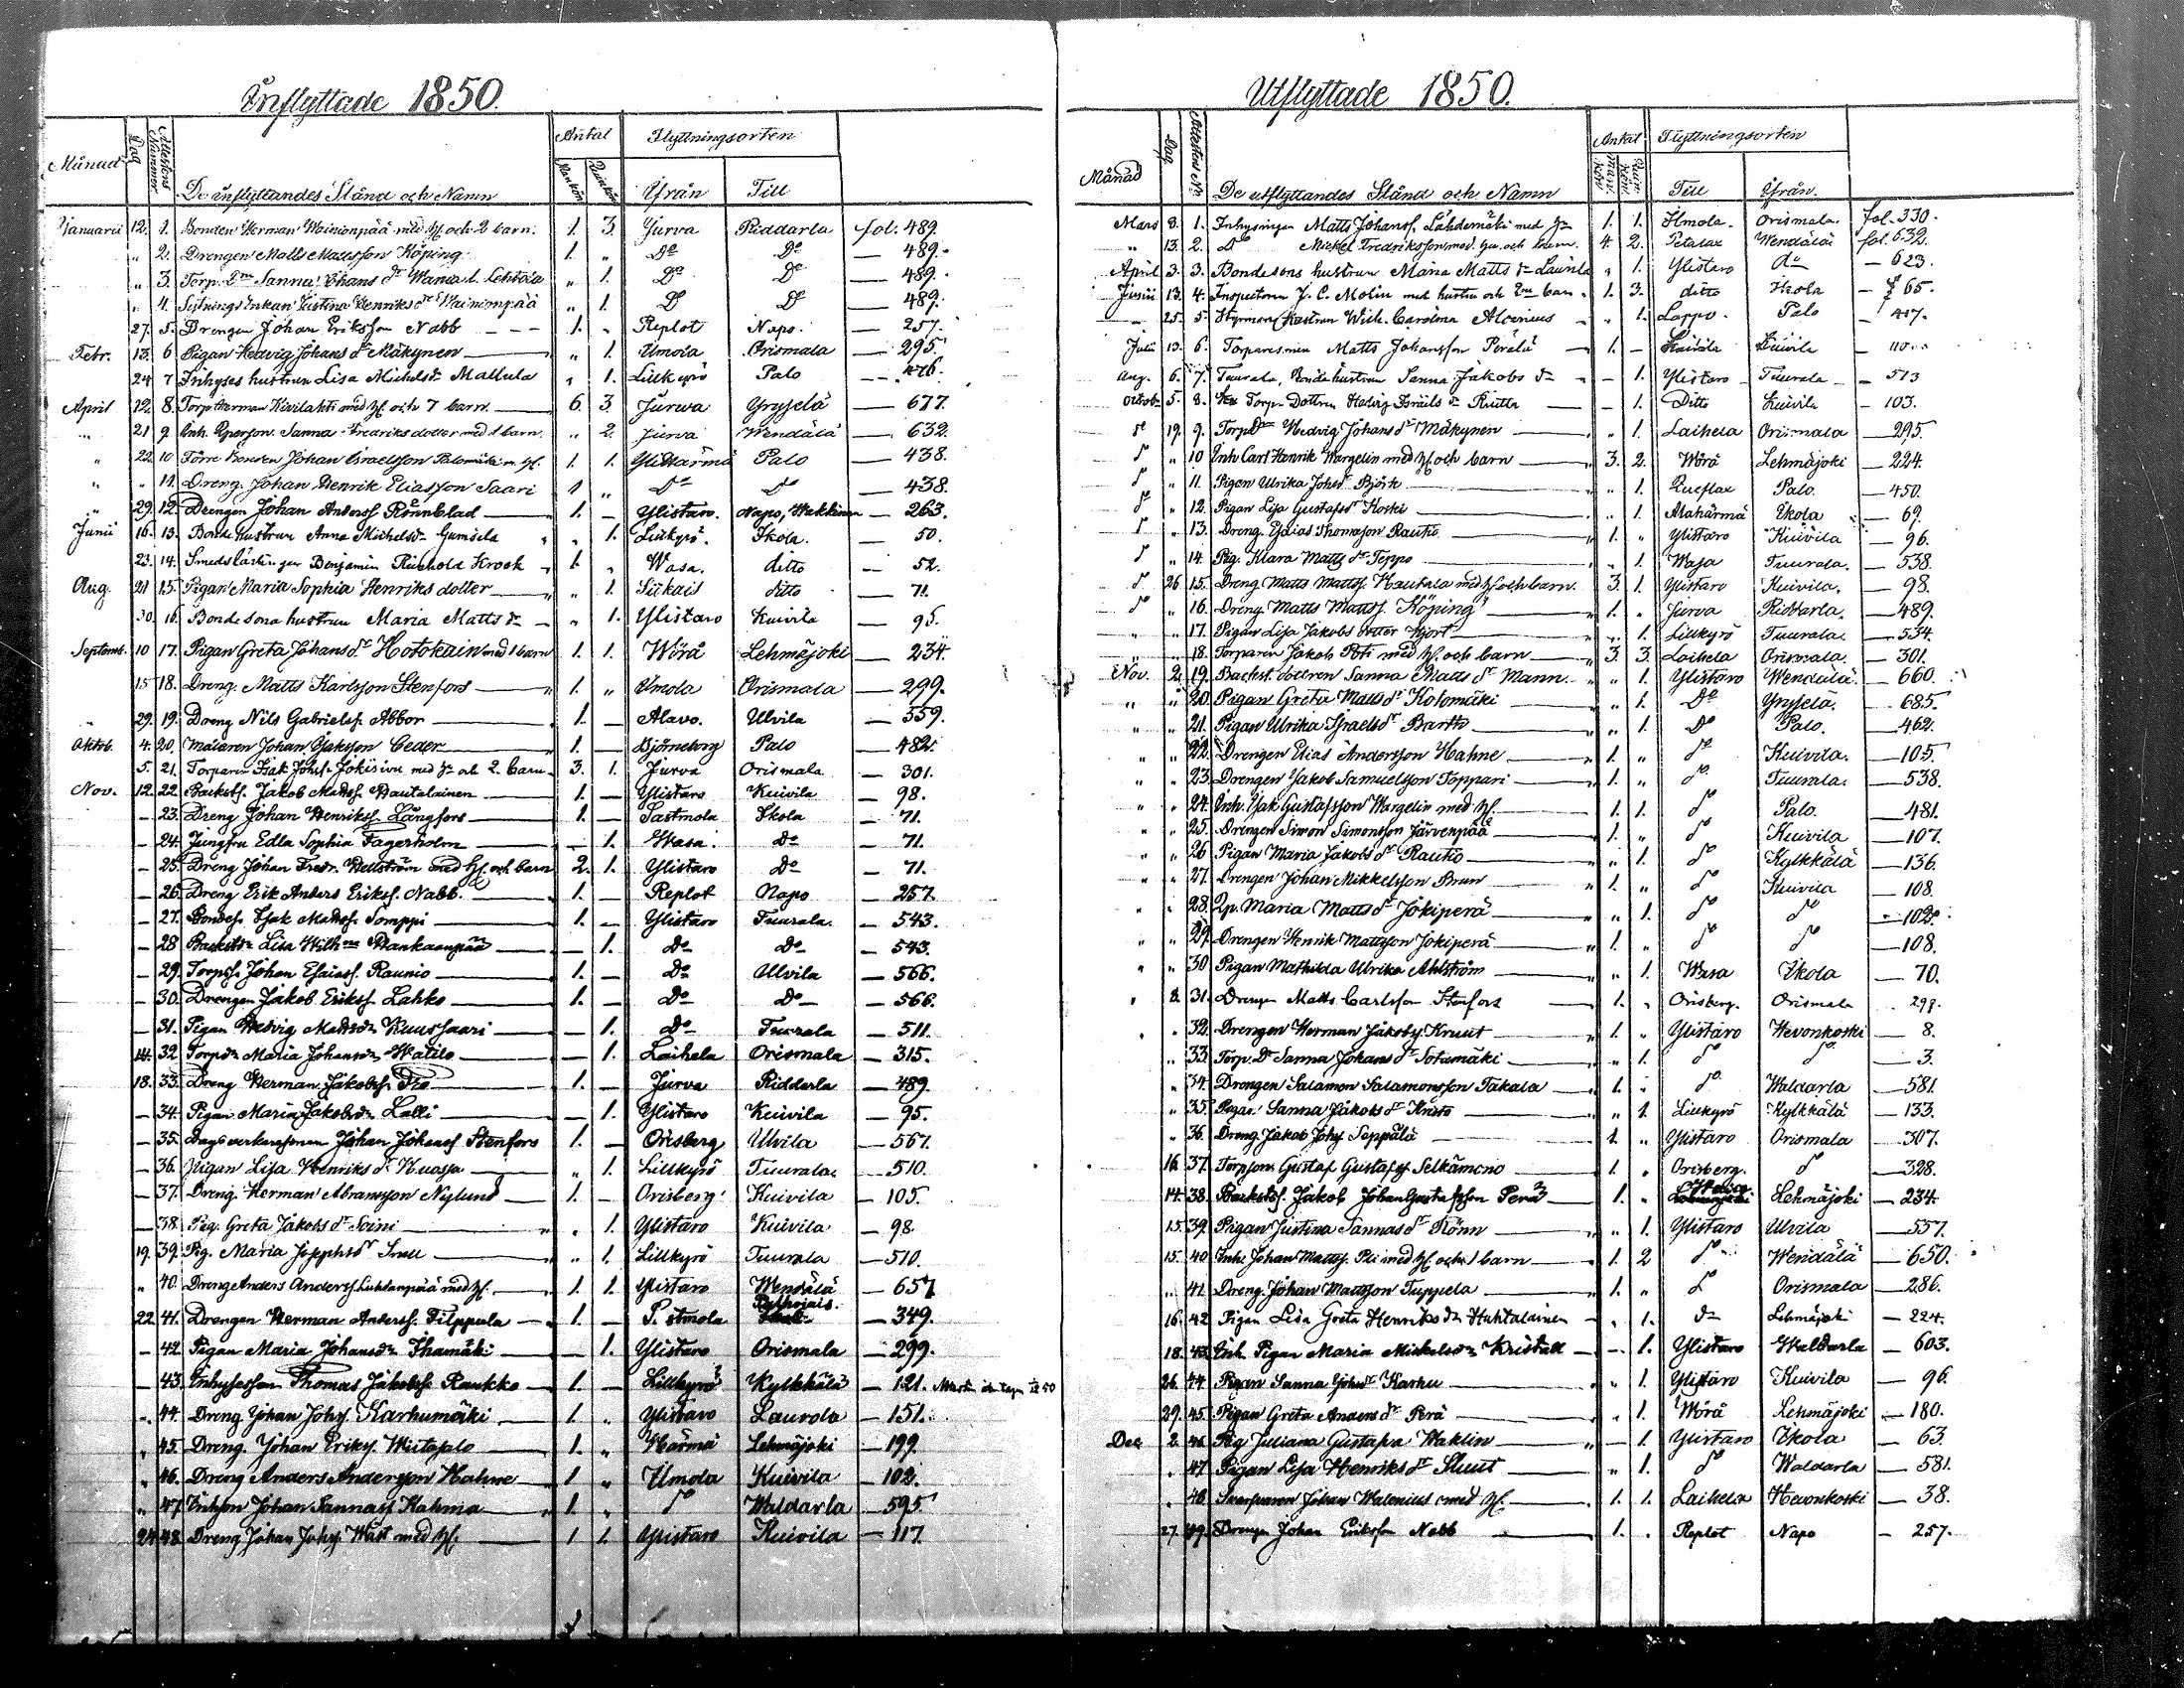 Inflyttade 1850.
Månad Dag Attestens Nummer De inflyttandes Stånd och Namn Antal Mankön Qvinkön Flyttningsorten Ifrån Till
Januarii 12. 1. Bonden Herman Wainionpää med h. och 2 barn. 1. 3. Jurva Riddarla fol. 489.
" 2. Drengen Matts Mattsson Köping. 1. " Do Do — 489.
" 3. Torp. Sanna Johans dr " 1. Do Do — 489.
" 4. Sytnings Enkan Justina Henriks dr Wainionpää " 1. Do Do — 489.
27. 5. Drengen Johan Eriksson Nabb 1. " Replot Napo. — 257.
Febr. 13. 6 Pigan Hedvig Johans dr Mäkynen " 1. Ilmola Orismala — 295.
24 7 Inhyses hustrun Lisa Michelsdr Mallula " 1. Lillkyrö Palo — 476.
April 12. 8. Torp. Herman Kivilahti med h. och 7 barn. 6. 3. Jurwa Gryselä — 677.
" 21 9. Inh. Qperson. Sanna Fredriksdotter med 1 barn. " 2. Jurva Wendälä — 632.
" 22. 10 Torre Bonden Johan Israelsson Palomäki m. h. 1. 1. Ylihärmä Palo — 438.
" " 11. Dreng. Johan Henrik Eliasson Saari 1 " Do Do — 438.
" 29. 12. Drengen Johan Anderss. Rönnblad 1. — Ylistaro. Napo, — 263.
Junii 16. 13. Bonde hustrun Anna Michelsdr Gumsila " 1. Lillkyrö. Ikola. — 50.
23. 14. Smedslärlingen Benjamin Reinhold Krook 1. " Wasa. ditto — 52.
Aug. 21 15. Pigan Maria Sophia Henriks dotter " 1. Siikais ditto — 71.
30. 16. Bondesona hustrun Maria Matts dr " 1. Ylistaro Kuivila — 95.
Septemb. 10 17. Pigan Greta Johans dr Hotokain med 1 barn 1. 1. Wörå Lehmäjoki — 234.
15 18. Dreng. Matts Karlsson Stenfors 1. " Ilmola Orismala — 299.
" 29. 19. Dreng Nils Gabrielss. Abbor 1. — Alavo. Ulvila — 559.
Oktob. 4. 20. Målaren Johan Isaksson Ceder 1. — Björneborg Palo — 482.
5. 21. Torparen Isak Johss. Jokisivu med h. och 2. barn. 3. 1. Jurva Orismala — 301.
Nov. 12. 22. Backsts. Jakob Mattss. Hautalainen 1. — Ylistaro Kuivila — 98.
— 23. Dreng Johan Henrikss. Långfors 1. — Sastmola Ikola — 71.
— 24. Jungfru Edla Sophia Fagerholm — 1. Wasa. do — 71.
— 25. Dreng Johan Fredr. Hellström med h. och barn 2. 1. Ylistaro Do — 71.
— 26. Dreng Erik Anders Erikss. Nabb. 1. — Replot Napo — 257.
— 27. Bondes. Isak Mattss. Somppi 1. — Ylistaro Tuurala. — 543.
— 28 Backstdr Lisa Wilh. Hankaanpää — 1. Do Do — 543.
— 29. Torpss. Johan Esaiass. Raunio 1. — Do Ulvila — 566.
— 30. Drengen Jakob Erikss. Lahko 1. — Do Do — 566.
— 31. Pigan Hedvig Mattsdr Kuussaari — 1. Do Tuurala — 511.
14. 32. Torpdr Maria Johansdr Watilo — 1. Laihela Orismala — 315.
18. 33. Dreng Herman Jakobss. Fro 1. — Jurva Riddarla — 489.
— 34. Pigan Maria Jakobsdr Lalli — 1. Ylistaro Kuivila — 95.
— 35. Dagsverkarsonen Johan Johanss Stenfors 1. — Orisberg Ulvila — 567.
— 36. Pigan Lisa Henriks dr Kuassa " 1. Lillkyrö Tuurala. — 510.
— 37. Dreng. Herman Abramsson Nylund 1. — Orisberg Kuivila — 105.
— 38. Pig. Greta Jakobs dr Soini " 1. Ylistaro Kuivila — 98.
19. 39. Pig. Maria Josephs dr Snell " 1. Lillkyrö Tuurala — 510.
" 40. Dreng Anders Anderss. Luhtanpää med h. 1. 1. Ylistaro Wendälä — 657
22 41. Drengen Herman Anderss. Filppula 1. — — 349.
— 42. Pigan Maria Johansdr Ihamäki — 1. Ylistaro Orismala — 299.
— 43. Inhysesson Thomas Jakobss. Raukko 1. — Lillkyrö Kylkkälä — 121.
" 44. Dreng Johan Johss. Karhumäki 1. " Ylistaro Laurola — 151.
" 45. Dreng. Johan Erikss. Wiitasalo 1. " Härmä Lehmäjoki — 199.
" 46. Dreng Anders Andersson Hahne 1. " Ilmola Kuivila — 102.
" 47. Inhson Johan Sannass Kahma 1. " do Waldarla — 595
24 48. Dreng Johan Johss. Wäst med h. 1 1. Ylistaro Kuivila — 117.
Utflyttade 1850.
Månad Dag Attestens No. De utflyttandes Stånd och Namn Antal Mankön Qvinkön Flyttningsorten Till Ifrån.
Mars 8. 1. Inhysingen Matts Johanss. Lähdemäki med h. 1. 1. Ilmola. Orismala. fol. 330.
" 13. 2. do Mickel Fredriksson med. hu. och barn. 4 2. Petalax Wendälä fol. 632.
April 3. 3. Bondesons hustrun Maria Matts dr Laurila " 1. Ylistaro do — 623.
Junii 13. 4. Inspectoren J. C. Molin med hustru och 2ne barn. 1. 3. ditto Ikola — 65.
— 25. 5. Carolina " 1. Lappo. Palo — 417.
Julii 13. 6. Torparesonen Matts Johansson Perälä 1. — Kuivila — 110.
Aug. 6. 7. Tuurala, Bondehustrun Sanna Jakobs dr — 1. Ylistaro Tuurala — 513
Octob. 5. 8. Torp. Dottren Hedvig Israils dr Riitta — 1. Ditto Kuivila — 103.
do 19. 9. Torpdr Hedvig Johans dr Mäkynen " 1. Laihela Orismala — 295.
do " 10 Inh Carl Henrik Wargelin med h. och barn 3. 2. Wörå Lehmäjoki — 224.
do " 11. Pigan Ulrika Johsdr Björk " 1. Queflax Palo. — 450.
do " 12. Pigan Lisa Gustafsdr Koski " 1. Alahärmä Ikola — 69.
do " 13. Dreng. Esaias Thomasson Rautio 1. " Ylistaro Kuivila — 96.
do " 14. Pig. Klara Matts dr Teppo " 1. Wasa Tuurala. — 538.
do 26 15. Dreng. Matts Mattss. Hautala med h. och barn. 3. 1. Ylistaro Kuivila. — 98.
do " 16. Dreng Matts Mattss. Köping 1. " Jurva Riddarla. — 489.
" " 17. Pigan Lisa Jakobs dotter Hjort " 1. Lillkyrö Tuurala. — 534.
" " 18. Torparen Jakob Poti med h. och barn 3. 3. Laihela Orismala. — 301.
Nov. 2. 19. Backst. dottren Sanna Matts dr Mann. " 1. Ylistaro Wendälä. — 660.
" " 20. Pigan Greta Matts dr Kotomäki " 1. Do Gryselä. — 685.
" " 21. Pigan Ulrika Israels dr Barth " 1. Do Palo. — 462.
" " 22. Drengen Elias Andersson Hahne 1. " do Kuivila. — 105.
" " 23. Drengen Jakob Samuelsson Toppari 1. " do Tuurala. — 538.
" " 24. Inh. Isak Gustafsson Wargelin med h. 1. 1. do Palo. — 481.
" " 25. Drengen Simon Simonsson Järvenpää 1. " do Kuivila — 107.
" " 26 Pigan Maria Jakobs dr Rautio " 1. do Kylkkälä — 136.
" " 27. Drengen Johan Mikkelsson Brun 1. " do Kuivila — 108.
" " 28. Qp. Maria Matts dr Jokiperä " 1. do do — 102.
" " 29. Drengen Henrik Mattsson Jokiperä 1. " do do — 108.
" " 30 Pigan Mathilda Ulrika Ahlström " 1. Wasa Ikola — 70.
" 8. 31. Drengen Matts Carlsson Stenfors 1. " Orisberg. Orismala 299.
" 32. Drengen Herman Jakobss. Knuut 1. " Ylistaro Hevonkoski — 8.
" 33. Torp. Dr Sanna Johans dr Sotamäki " 1. do do — 3.
" 34. Drengen Salamon Salamonsson Takala 1. " do Waldarla — 581
" 35. Pigan Sanna Jakobs dr " 1. Lillkyrö Kylkkälä — 133.
" 36. Dreng Jakob Johss. Seppälä 1. " Ylistaro Orismala — 307.
16 37. Torpson. Gustaf Gustafss. Selkämeno 1. " Orisberg. do — 328.
14. 38. Backsts. Jakob Johan Gustafsson Perä 1. " Lehmäjoki — 234.
15. 39. Pigan Justina Sannas dr Rönn " 1. Ylistaro Ulvila — 557.
15. 40 Inh. Johan Mattss. Pli med h. och 1 barn 1. 2 do Wendälä — 650.
" 41 Dreng. Johan Mattsson Tuppela 1. " do Orismala — 286.
16. 42 Pigan Lisa Greta Henriksdr Huhtalainen " 1. do Lehmäjoki — 224.
18. 43. Inh. Pigan Maria Mickelsdr Kristall — 1. Ylistaro Waldarla — 603.
26. 44 Pigan Sanna Johsdr Karhu " 1. Ylistaro Kuivila — 96.
29. 45. Pigan Greta Anders dr Perä " 1. Wörå Lehmäjoki — 180.
Dec 2 46. Pig Juliana Gustava Waklin — 1. Ylistaro Ikola — 63.
" 47 Pigan Lisa Henriks dr Sluut " 1. do Waldarla — 581.
" 48. Johan Walenius med h. 1. 1. Laihela Hevonkoski — 38.
27. 49. Drengen Johan Eriksson Nabb 1. " Replot Napo — 257.